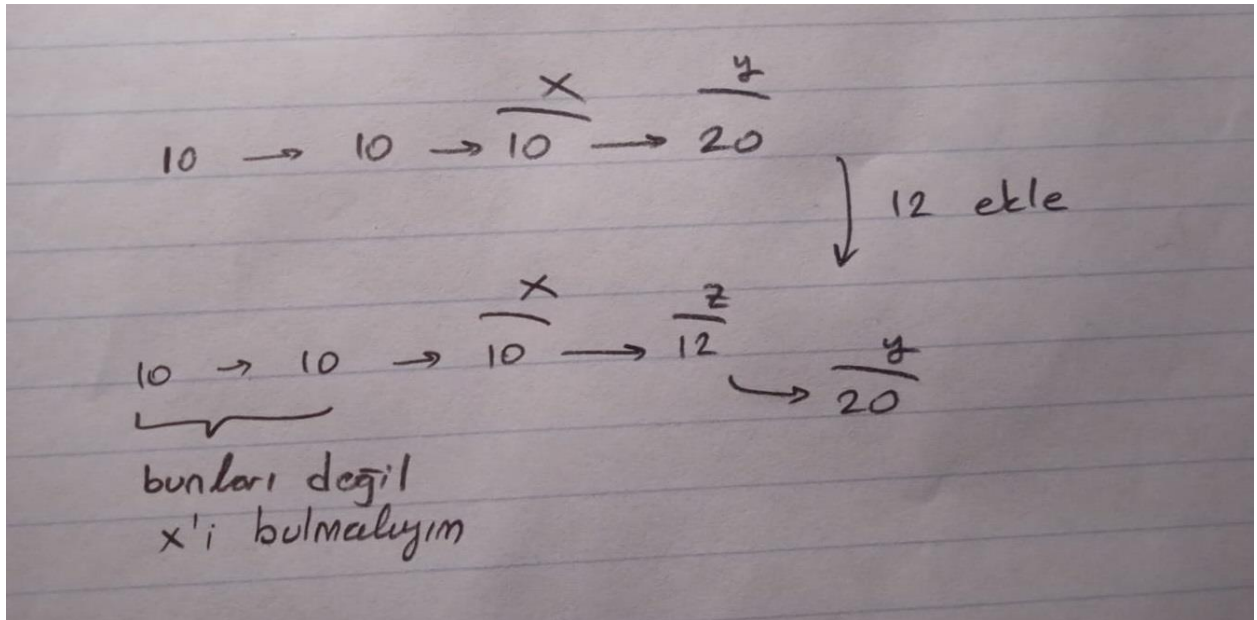 x y
10 → 10 → 10 → 20
12 ekle
x z
10 → 10 → 10 → 12
y
→ 20
bunları değil
x'i bulmalıyım